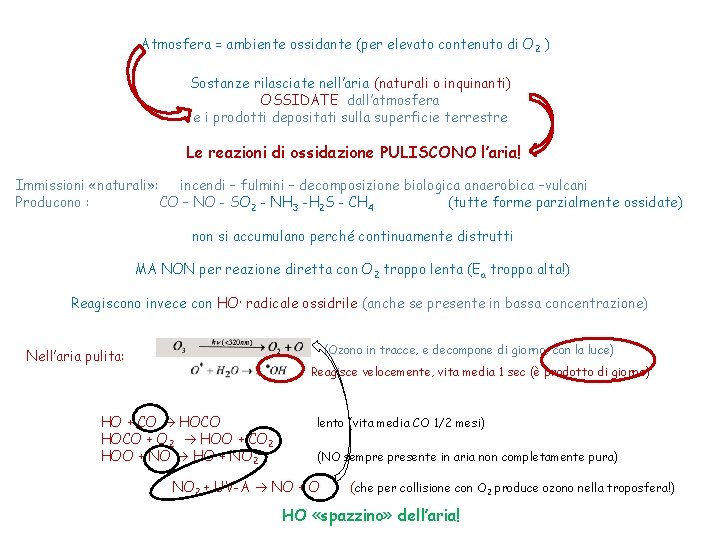 Atmosfera = ambiente ossidante (per elevato contenuto di O2 )
Sostanze rilasciate nell'aria (naturali o inquinanti)
OSSIDATE dall'atmosfera
e i prodotti depositati sulla superficie terrestre
Le reazioni di ossidazione PULISCONO l'aria!
Immissioni «naturali»: incendi – fulmini – decomposizione biologica anaerobica –vulcani
Producono : CO – NO - SO2 - NH3 -H2S - CH4 (tutte forme parzialmente ossidate)
non si accumulano perché continuamente distrutti
MA NON per reazione diretta con O2 troppo lenta (Ea troppo alta!)
Reagiscono invece con HO· radicale ossidrile (anche se presente in bassa concentrazione)
Nell'aria pulita: O3 hν (<320nm) → O2 + O (Ozono in tracce, e decompone di giorno, con la luce)
O* + H2O → 2 •OH Reagisce velocemente, vita media 1 sec (è prodotto di giorno)
HO + CO → HOCO lento (vita media CO 1/2 mesi)
HOCO + O2 → HOO + CO2
HOO + NO → HO + NO2 (NO sempre presente in aria non completamente pura)
NO2 + UV-A → NO + O (che per collisione con O2 produce ozono nella troposfera!)
HO «spazzino» dell'aria!